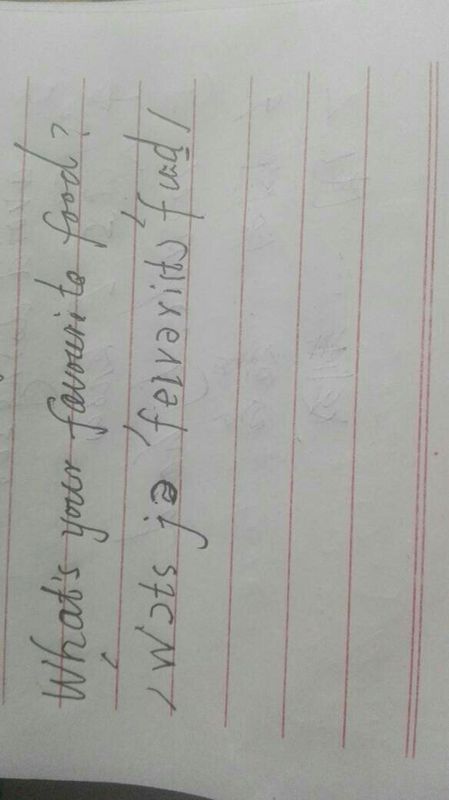 What's your favourite food?
/ˈwɔts jə ˈfeivərit ˈfud/